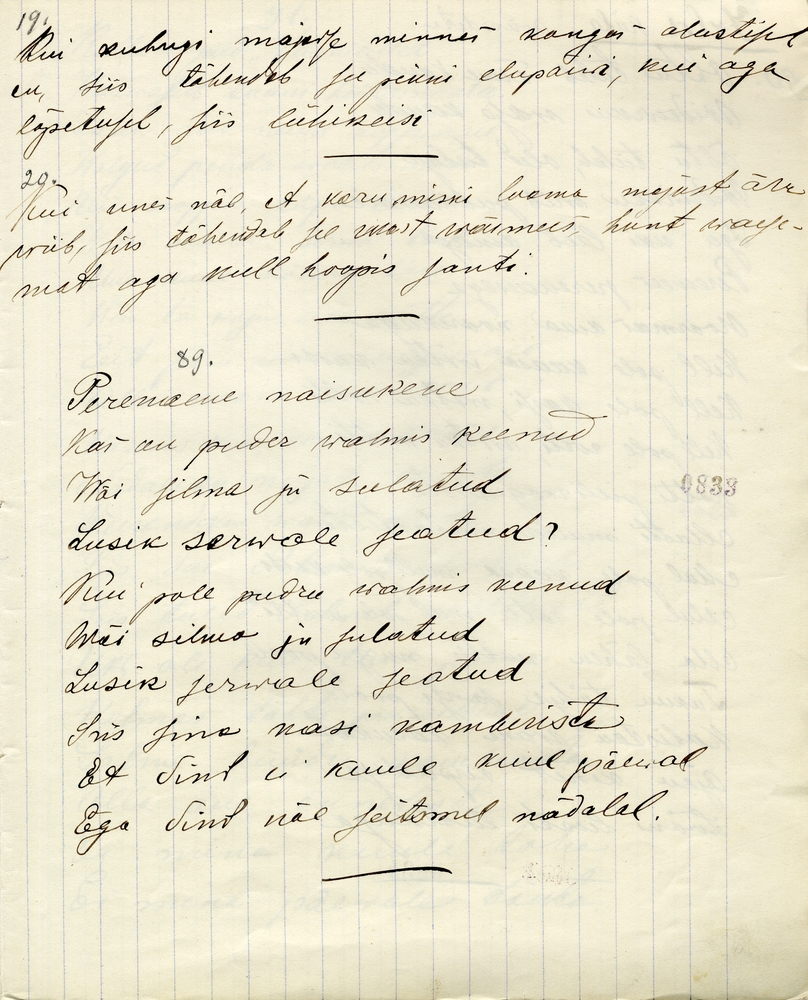 19.
Kui kuhugi majasse minnes kangas alustisel
on, siis tähendab see pikki elupäivi, kui aga
lõpetusel, siis lühikeisi
20.
Kui unes näb, et karu miski looma majast ära
wiib, siis tähendab see wõõrmees, hunt waese-
mat aga kull hoopis santi.
89.
Perenaene naisukene
Kas on puder walmis keenud
Wõi silma ju sulatud
Lusik serwale seatud?
Kui pole pudru walmis keenud
Wõi silma ju sulatud
Lusik serwale seatud
Siis sina kasi kamberiste
Et Sind ei kuule kuul päewal
Ega Sind näe seitsmel nädalal.
0833